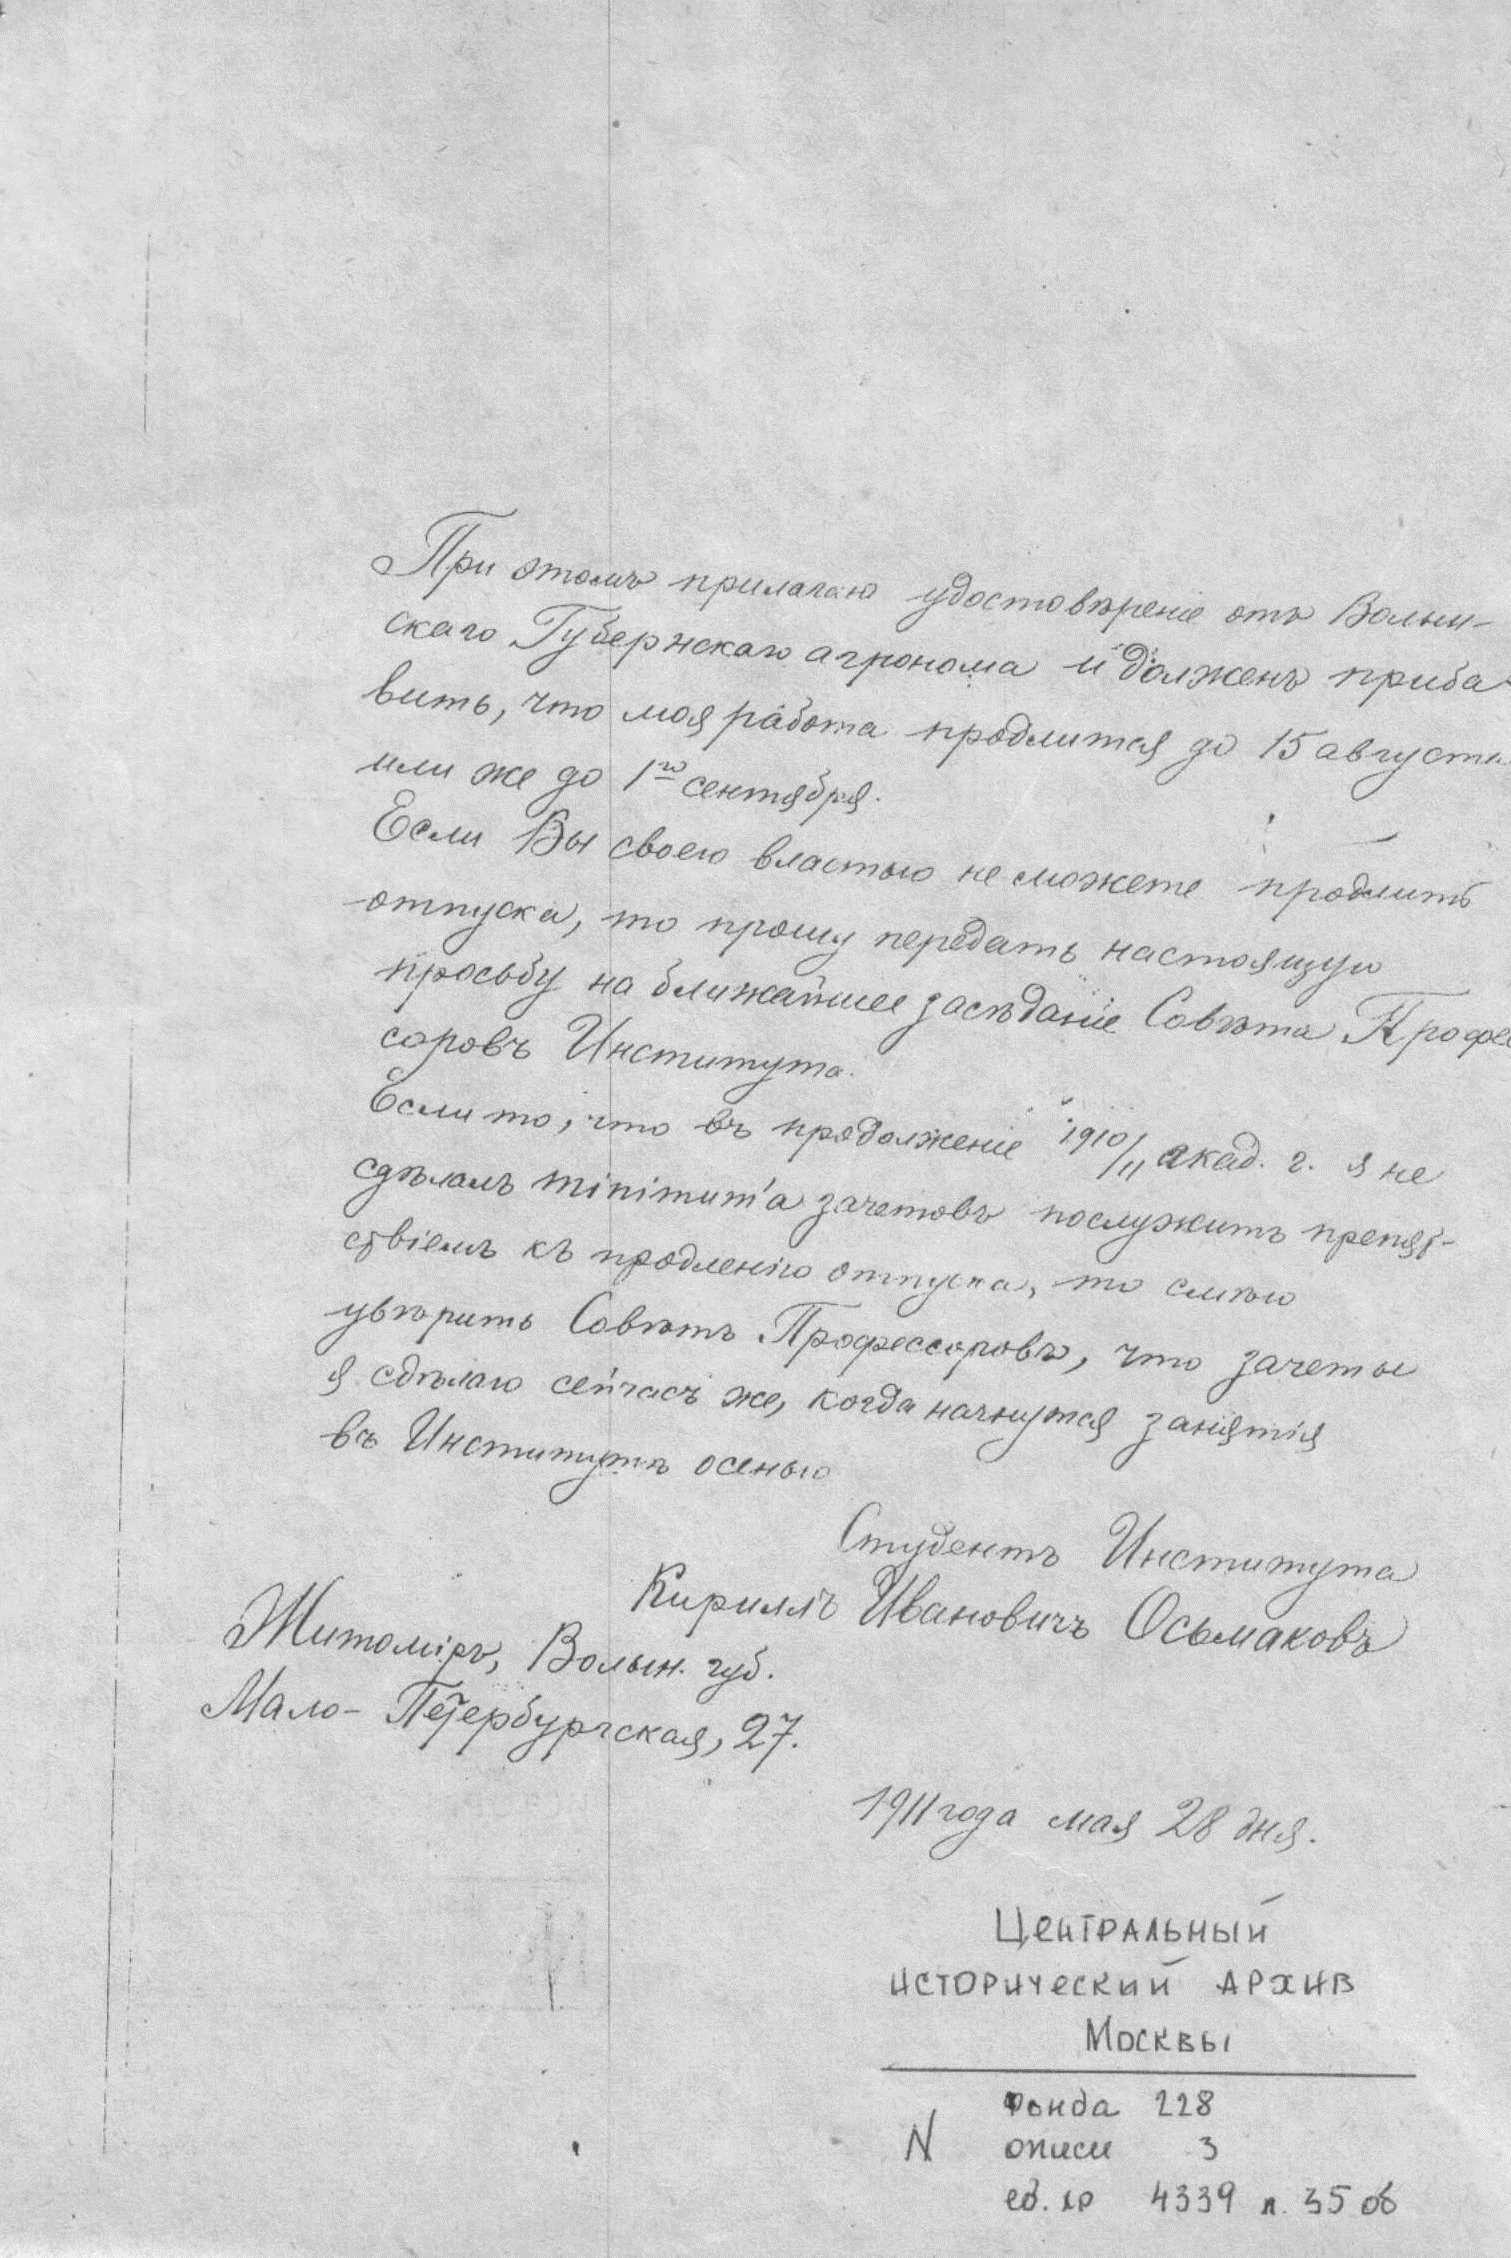 При этомъ прилагаю удостовѣреніе отъ Волын-
скаго Губернскаго агронома и долженъ приба-
вить, что моя работа продлится до 15 августа
или же до 1го сентября.
Если Вы своею властью не можете продлить
отпуска, то прошу передать настоящую
просьбу на ближайшее засѣданіе Совѣта Профес
соровъ Института.
Если то, что въ продолженіе 1910/11 акад. г. я не
сдѣлалъ minimum'а зачетовъ послужитъ препят-
ствіемъ къ продленію отпуска, то смѣю
увѣрить Совѣтъ Профессоровъ, что зачеты
я сдѣлаю сейчасъ же, когда начнутся занятія
въ Институтѣ осенью
Студентъ Института
Кириллъ Ивановичъ Осьмаковъ
Житоміръ, Волын. губ.
Мало-Петербургская, 27.
1911 года мая 28 дня.
Центральный
исторический архив
Москвы
Фонда 228
N описи 3
ед. хр 4339 л. 35 об